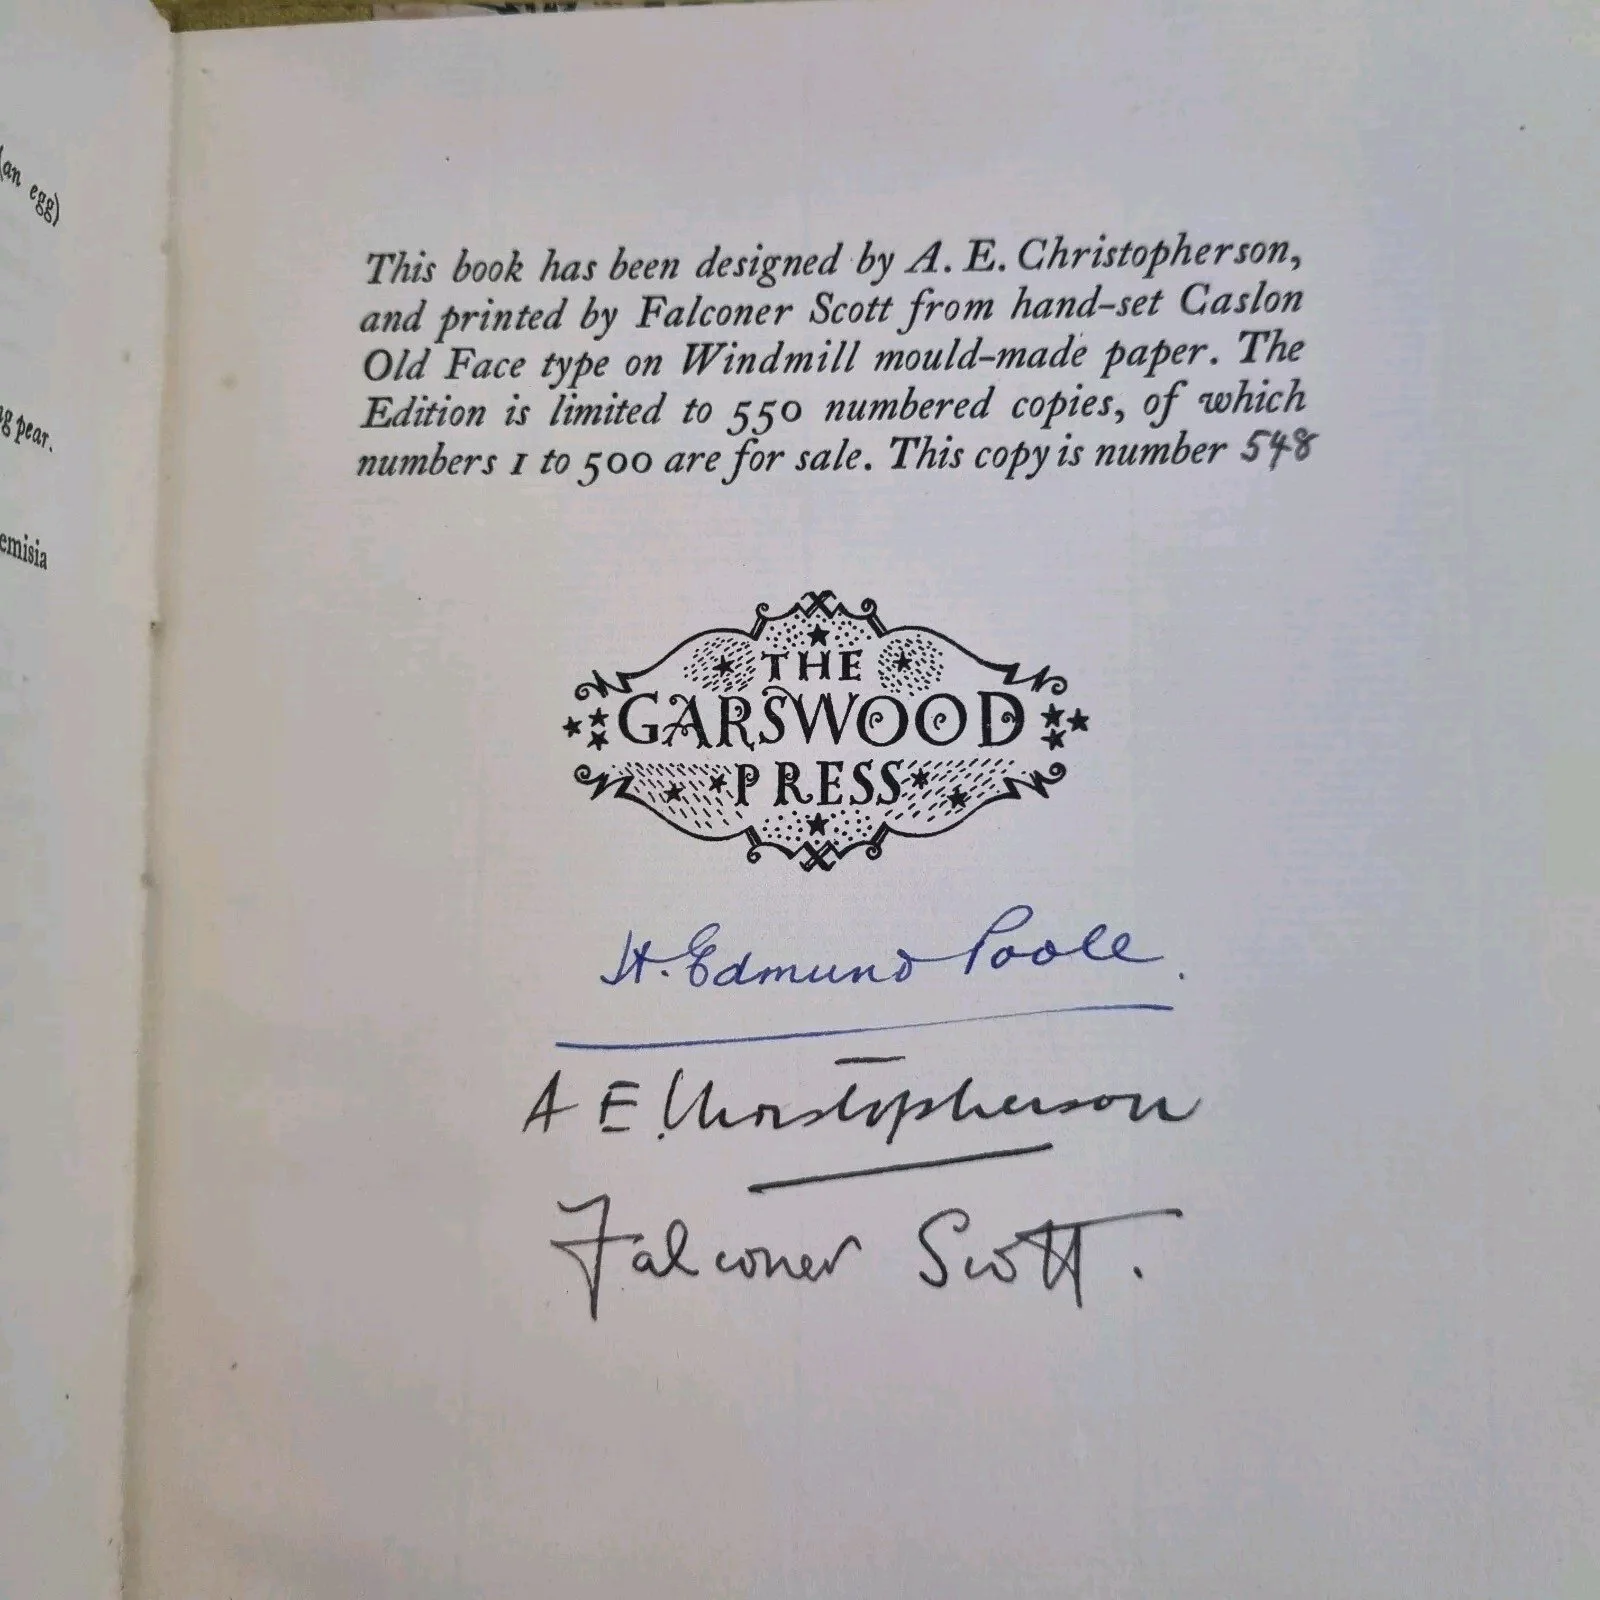 (an egg)
g pear.
emisia
This book has been designed by A. E. Christopherson,
and printed by Falconer Scott from hand-set Caslon
Old Face type on Windmill mould-made paper. The
Edition is limited to 550 numbered copies, of which
numbers 1 to 500 are for sale. This copy is number 548
THE
GARSWOOD
PRESS
H. Edmund Poole.
A E. Christopherson
Falconer Scott.